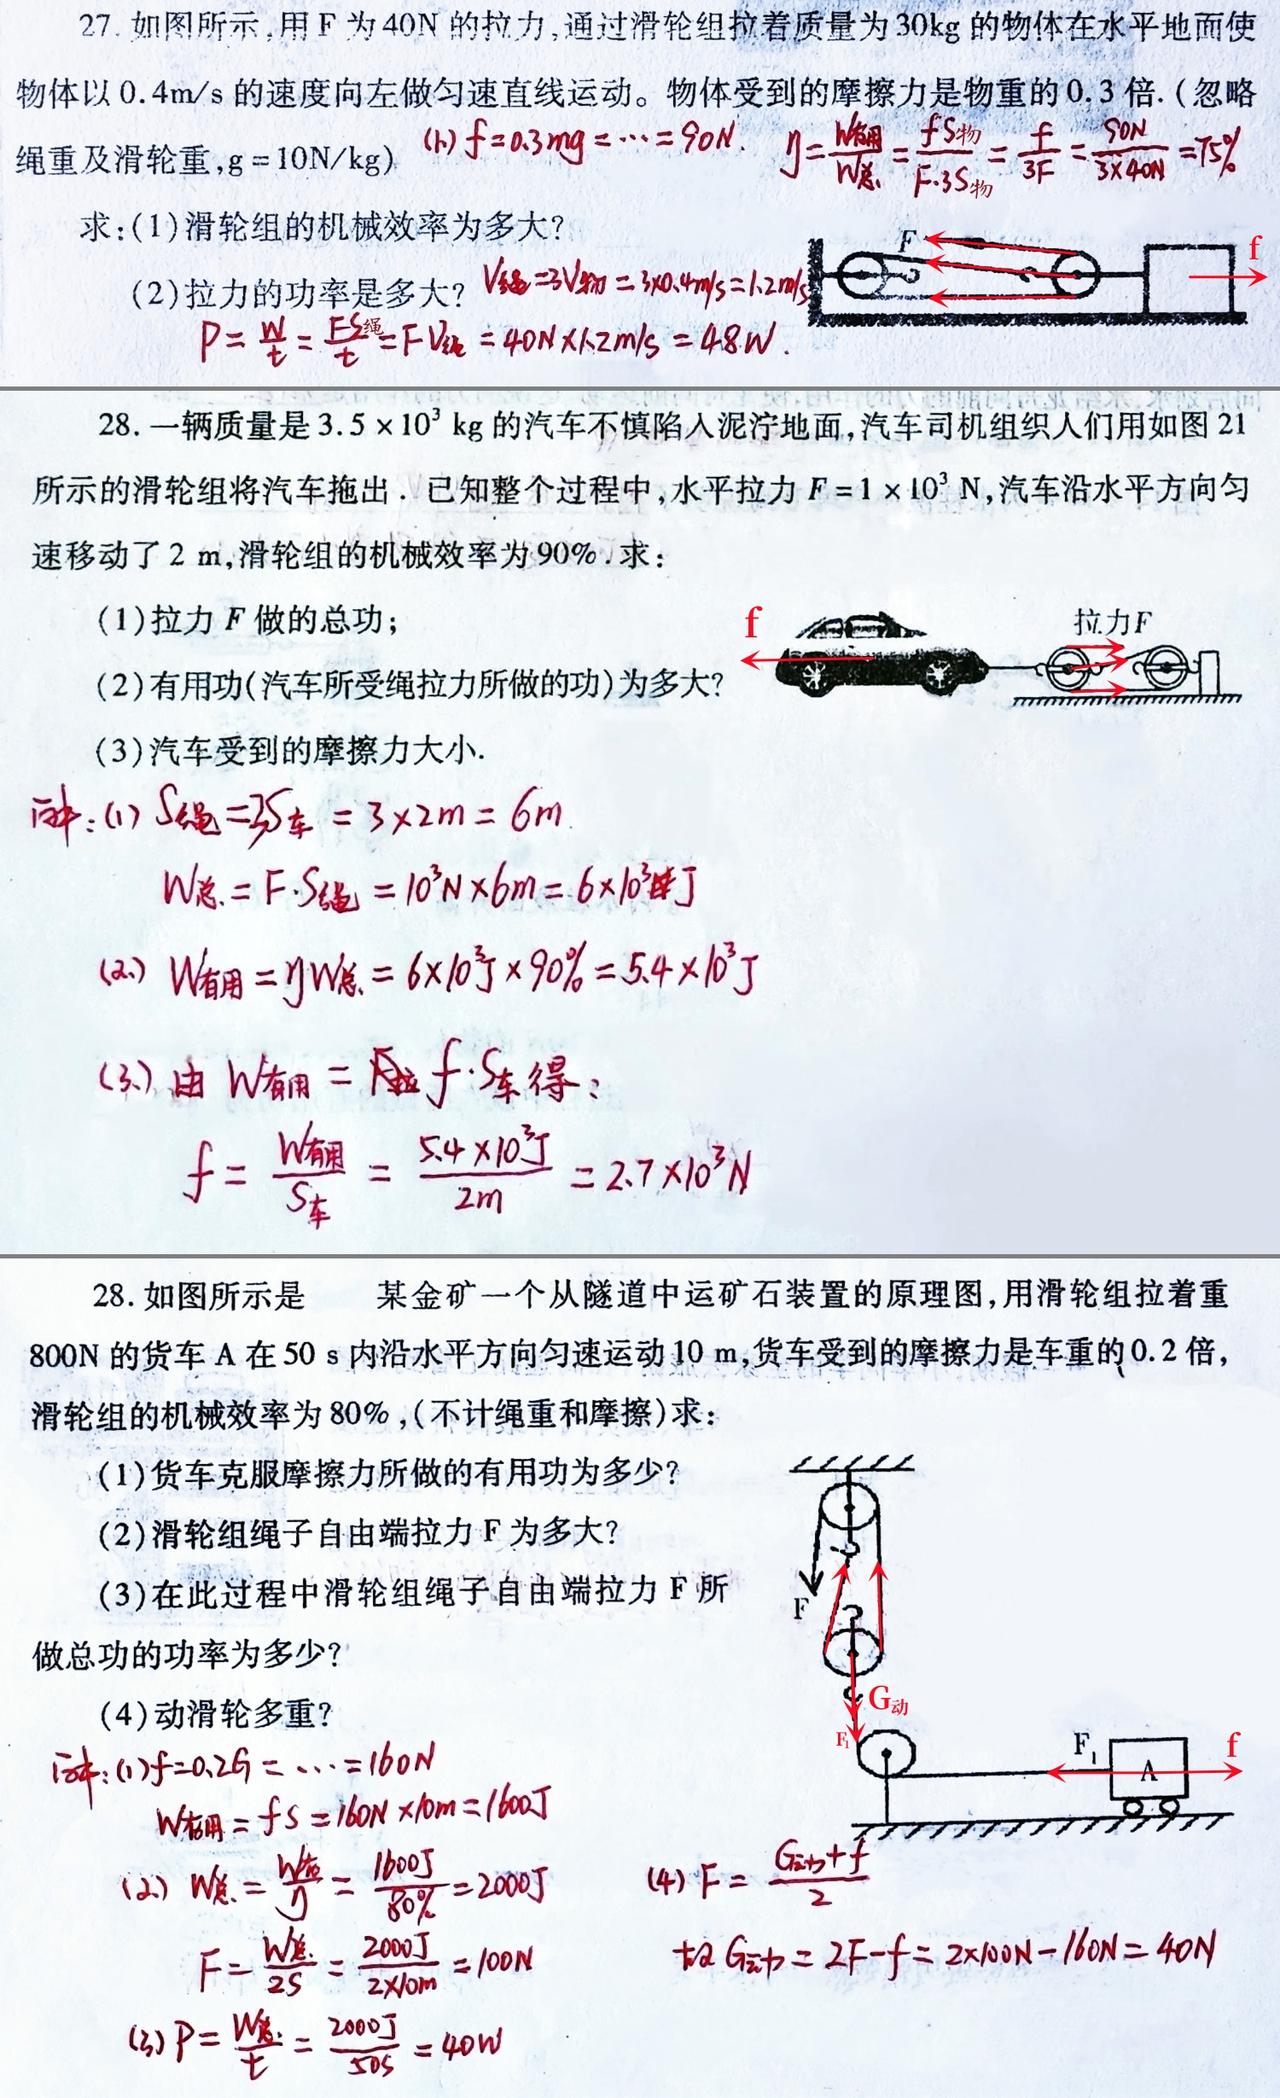 27. 如图所示,用 F 为 40N 的拉力,通过滑轮组拉着质量为 30kg 的物体在水平地面使
物体以 0.4m/s 的速度向左做匀速直线运动。物体受到的摩擦力是物重的 0.3 倍.(忽略
绳重及滑轮重,g=10N/kg)
(1) f=0.3mg=…=90N.
η=W有用/W总=fS物/F·3S物=f/3F=90N/3×40N=75%
求:(1)滑轮组的机械效率为多大?
F
f
(2)拉力的功率是多大?
V绳=3V物=3×0.4m/s=1.2m/s
P=W/t=FS绳/t=FV绳=40N×1.2m/s=48W.
28. 一辆质量是 3.5×10³ kg 的汽车不慎陷入泥泞地面,汽车司机组织人们用如图 21
所示的滑轮组将汽车拖出. 已知整个过程中,水平拉力 F=1×10³ N,汽车沿水平方向匀
速移动了 2 m,滑轮组的机械效率为 90%.求:
(1)拉力 F 做的总功;
f
拉力F
(2)有用功(汽车所受绳拉力所做的功)为多大?
(3)汽车受到的摩擦力大小.
解:(1) S绳=3S车=3×2m=6m
W总=F·S绳=10³N×6m=6×10³J
(2) W有用=ηW总=6×10³J×90%=5.4×10³J
(3) 由 W有用=f·S车得:
f=W有用/S车=5.4×10³J/2m=2.7×10³N
28. 如图所示是 某金矿一个从隧道中运矿石装置的原理图,用滑轮组拉着重
800N 的货车 A 在 50 s 内沿水平方向匀速运动 10 m,货车受到的摩擦力是车重的 0.2 倍,
滑轮组的机械效率为 80%,(不计绳重和摩擦)求:
(1)货车克服摩擦力所做的有用功为多少?
(2)滑轮组绳子自由端拉力 F 为多大?
(3)在此过程中滑轮组绳子自由端拉力 F 所
做总功的功率为多少?
(4)动滑轮多重?
F
G动
F₁
F₁
A
f
解:(1) f=0.2G=…=160N
W有用=fs=160N×10m=1600J
(2) W总=W有/η=1600J/80%=2000J
F=W总/2S=2000J/2×10m=100N
(3) P=W总/t=2000J/50s=40W
(4) F=G动+f/2
故 G动=2F-f=2×100N-160N=40N